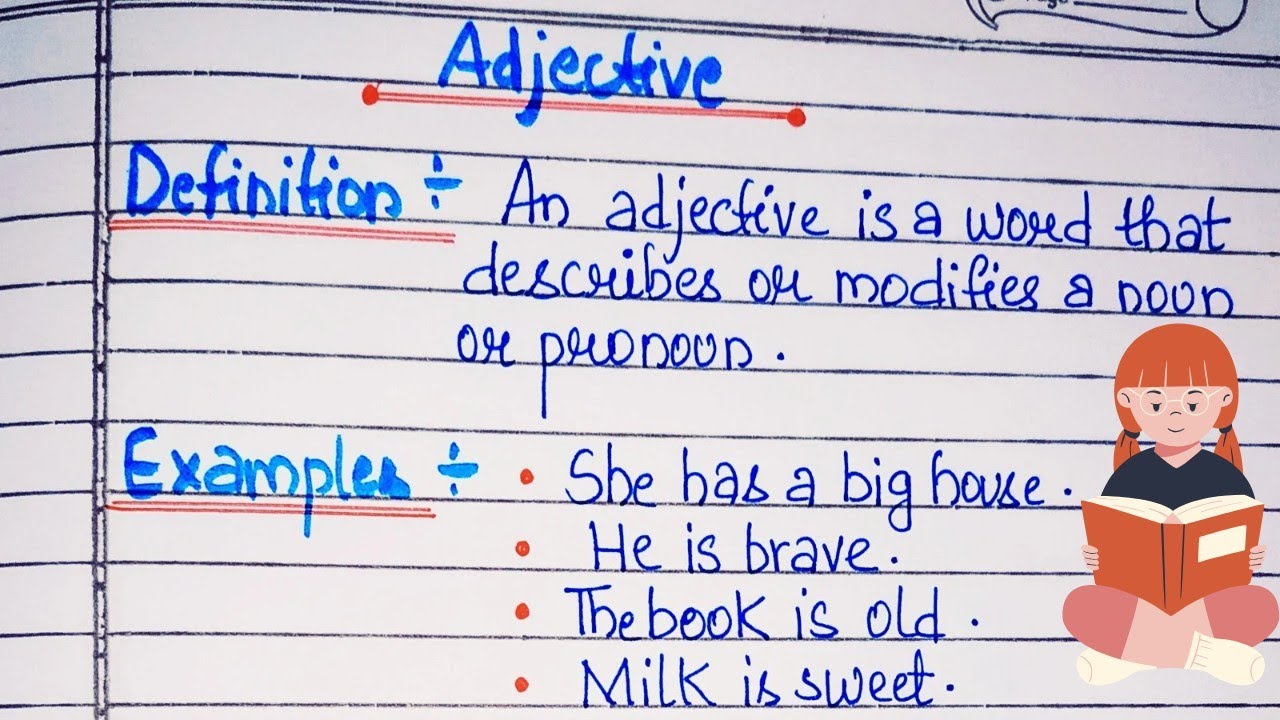 Adjective
Definition ÷ An adjective is a word that
describes or modifies a noun
or pronoun.
Examples ÷ • She has a big house.
• He is brave.
• The book is old.
• Milk is sweet.